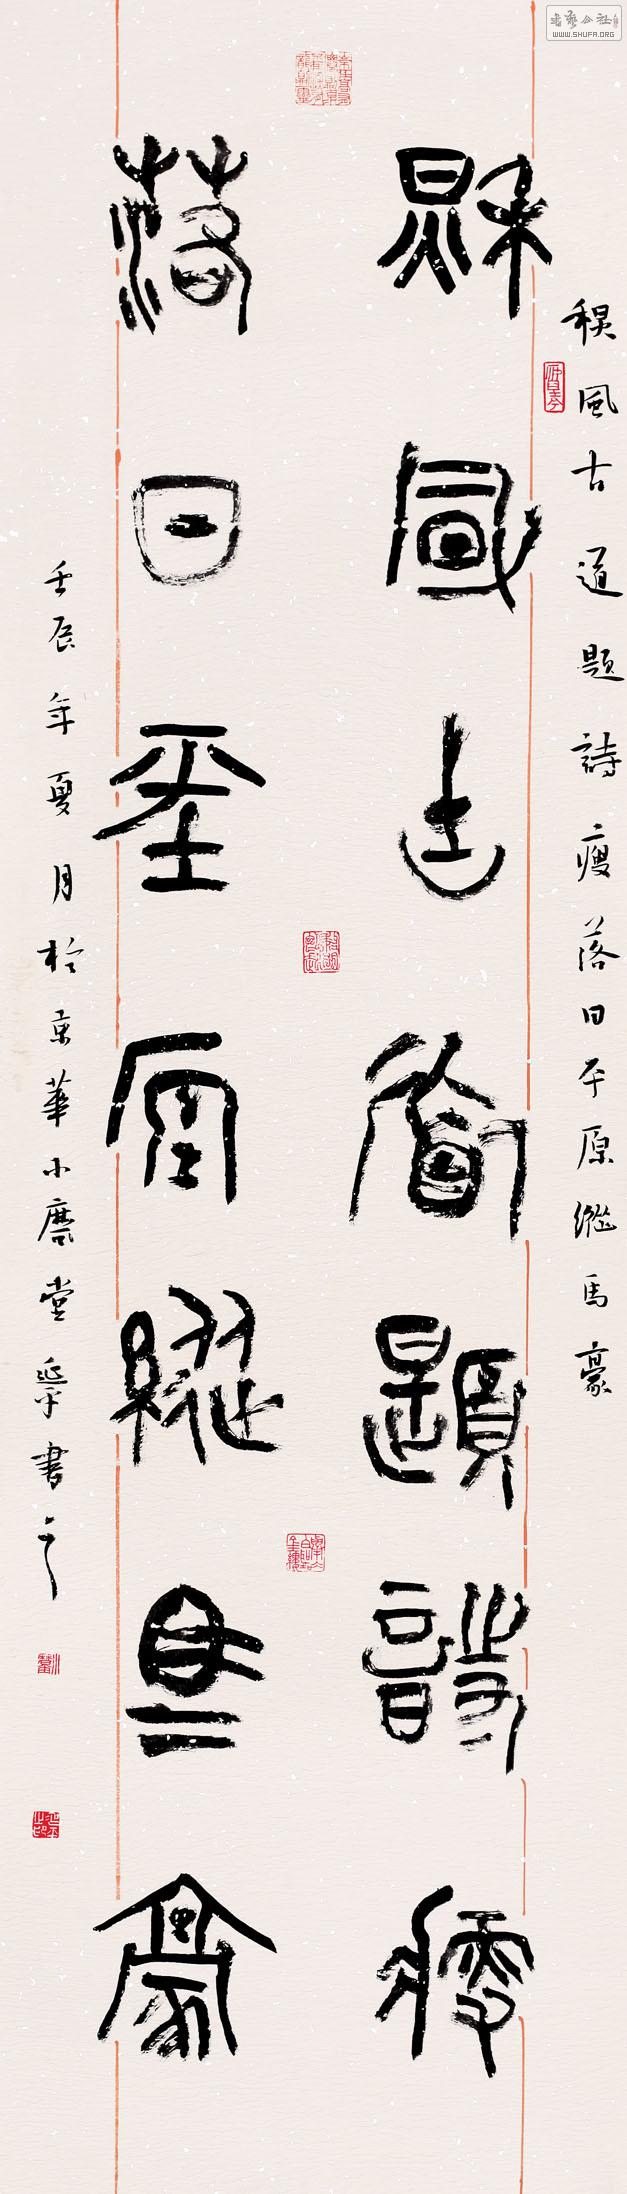 書藝公社
WWW.SHUFA.ORG
秋風古道題詩瘦落日平原縱馬豪
秋風古道題詩瘦
落日平原縱馬豪
壬辰年夏月於京華小堂延平書之